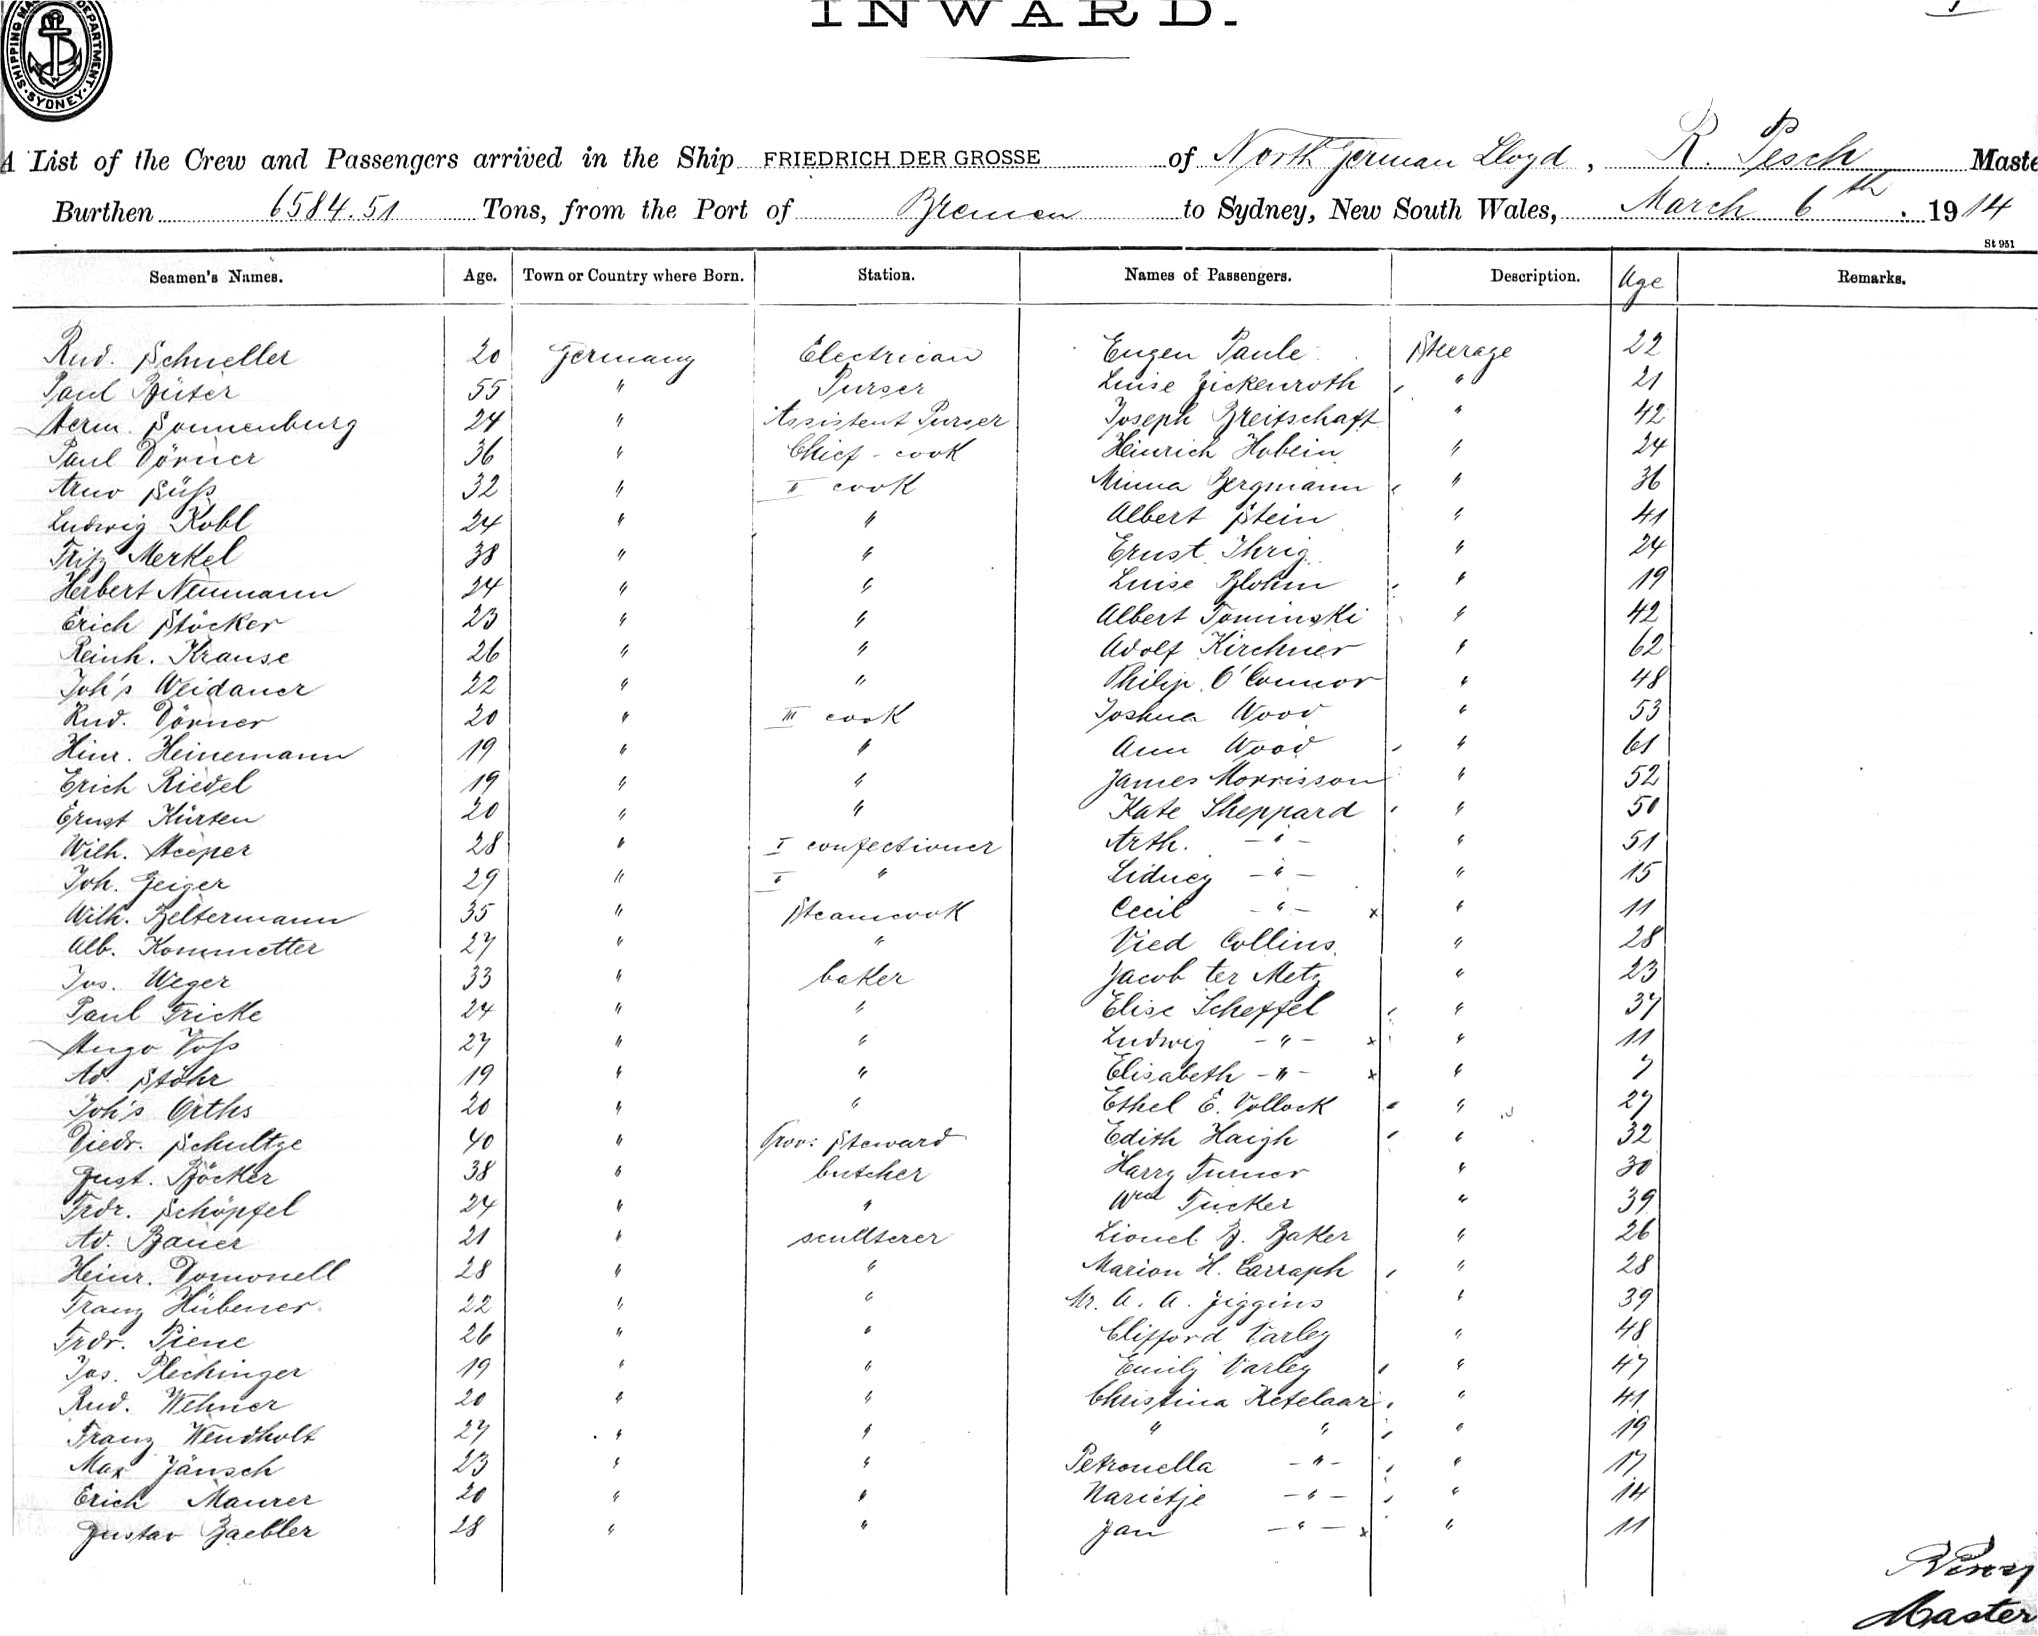 SHIPPING MA DEPARTMENT. SYDNEY.
INWARD.
A List of the Crew and Passengers arrived in the Ship FRIEDRICH DER GROSSE of North German Lloyd, R. Pesch Maste
Burthen 6584.51 Tons, from the Port of Bremen to Sydney, New South Wales, March 6th. 1914
St 951
Seamen's Names. Age. Town or Country where Born. Station. Names of Passengers. Description. Age Remarks.
Rud. Schneller 20 Germany Electrican Eugen Paule Steerage 22
Paul Büter 55 " Purser Luise Zickenroth " 21
Herm. Sonnenburg 24 " Assistent Purser Joseph Breitschaft " 42
Paul Dörner 36 " Chief - cook Heinrich Hobein " 24
Arno Süß 32 " II cook Minna Bergmann " 36
Ludwig Kobl 24 " " Albert Stein " 41
Fritz Merkel 38 " " Ernst Ihrig " 24
Herbert Neumann 24 " " Luise Blohm " 19
Erich Stöcker 23 " " Albert Tominski " 42
Reinh. Krause 26 " " Adolf Kirchner " 62
Joh's Weidauer 22 " " Philip O'Connor " 48
Rud. Dörner 20 " III cook Joshua Wood " 53
Hinr. Heinemann 19 " " Ann Wood " 61
Erich Riedel 19 " " James Morrisson " 52
Ernst Kürten 20 " " Kate Sheppard " 50
Wilh. Meeper 28 " I confectioner Arth. - " - " 51
Joh. Geiger 29 " II " Sidney - " - " 15
Wilh. Beltermann 35 " Steamcook Cecil - " - x " 11
Alb. Kommetter 27 " " Vied Collins " 28
Jos. Weger 33 " baker Jacob ter Metz " 23
Paul Fricke 24 " " Elise Scheffel " 37
Hugo Voß 27 " " Ludwig - " - x " 11
Ad. Stöhr 19 " " Elisabeth - " - x " 7
Joh's Orths 20 " " Ethel E. Vollock " 27
Diedr. Schultze 40 " Prov: Steward Edith Haigh " 32
Gust. Böcker 38 " butcher Harry Turner " 30
Frdr. Schöpfel 24 " " Wm Tucker " 39
Ad. Bauer 21 " scullerer Lionel B. Baker " 26
Heinr. Domonell 28 " " Marion H. Carraph " 28
Franz Hübener 22 " " Mr. A. A. Jiggins " 39
Frdr. Piene 26 " " Clifford Varley " 48
Jos. Plechinger 19 " " Emily Varley " 47
Rud. Wehner 20 " " Christina Ketelaar " 41
Franz Wendholt 27 " " " " " 19
Max Jänsch 23 " " Petronella - " - " 17
Erich Maurer 20 " " Marietje - " - " 14
Gustav Zaebler 28 " " Jan - " - x " 11
Master